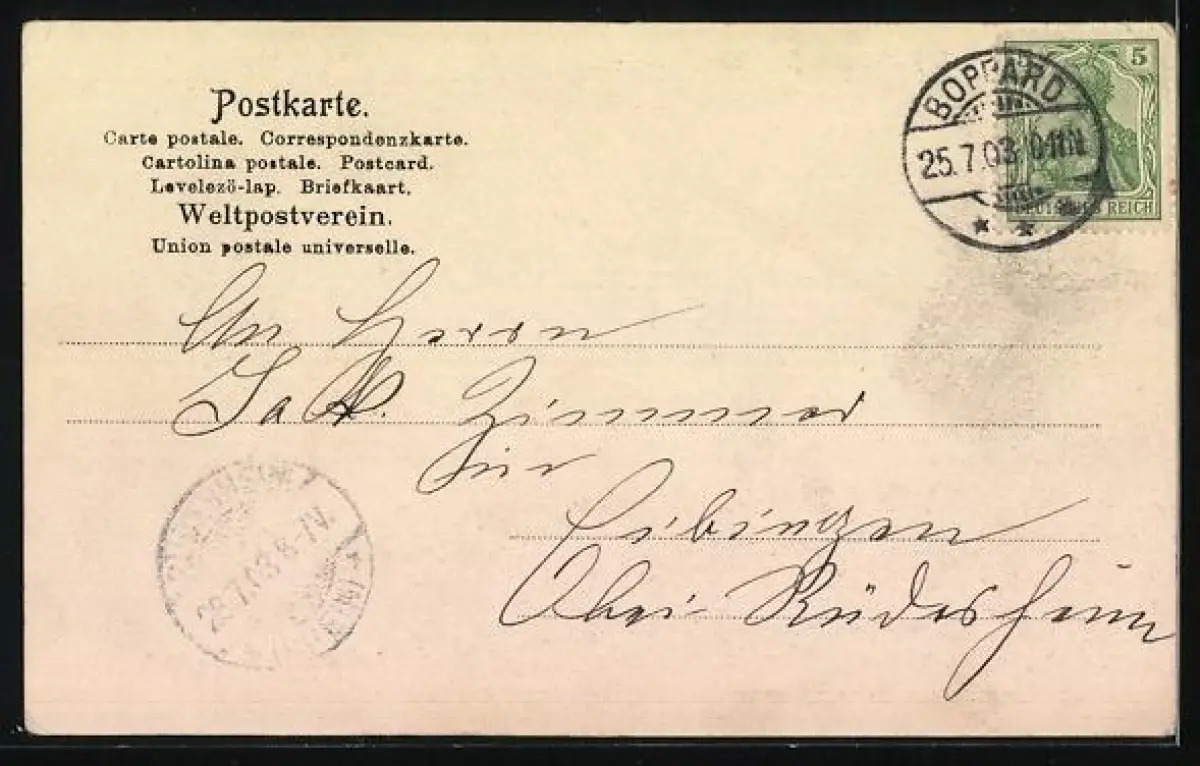 Postkarte.
Carte postale. Correspondenzkarte.
Cartolina postale. Postcard.
Levelezö-lap. Briefkaart.
Weltpostverein.
Union postale universelle.
5
BOPPARD
25.7.03
DEUTSCHES REICH
An Herrn
Jak. Zimmer
in
Eibingen
bei Rüdesheim
7.03.